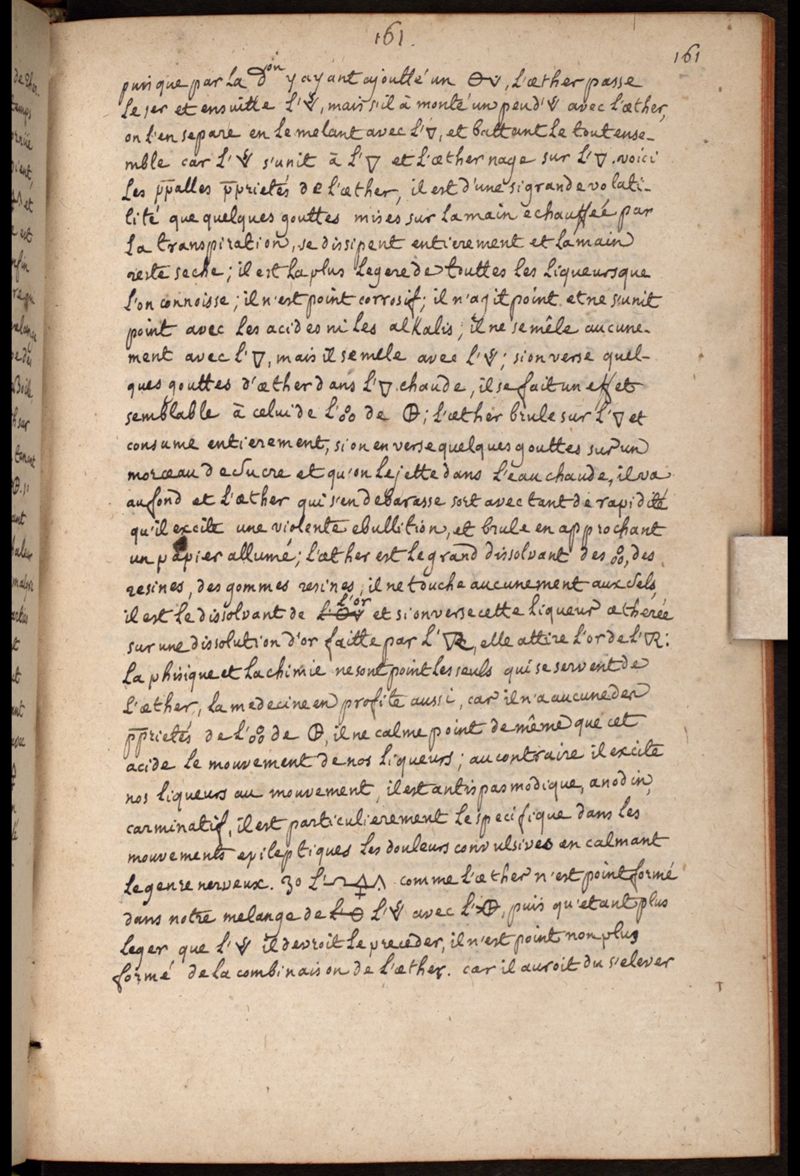 161.
161
puisque par la D^on y ayant ajoutté un 🜔🜈, l'œther passe
le 1er et ensuitte l'🜈, mais s'il à monté un peu d'🜈 avec l'œther,
on l'en separe en le melant avec l'🜄, et battant le toutense-
mble car l'🜈 s'unit à l'🜄 et l'œther nage sur l'🜄. voici
les pp̄alles pp̄rietés de l'œther, il est d'une si grande volati-
lité que quelques gouttes mises sur la main echauffée par
la transpiration, se dissipent entierement et la main
reste seche; il est la plus legere de touttes les liqueurs que
l'on connoisse; il n'est point corrosif; il n'agit point et ne s'unit
point avec les acides ni les alkalis; il ne se mêle aucune-
ment avec l'🜄, mais il se mele avec l'🜈; si on verse quel-
ques gouttes d'œther dans l'🜄 chaude, il se fait un effet
semblable à celui de l'🝆 de 🜖; l'œther brule sur l'🜄 et
consume entierement, si on en verse quelques gouttes sur un
morceau de sucre et qu'on le jette dans l'eau chaude, il va
au fond et l'œther qui s'en debarasse sort avec tant de rapidité
qu'il excite une violente ebullition, et brule en approchant
un papier allumé; l'œther est le grand dissolvant des 🝆, des
resines, des gommes resines; il ne touche aucunement aux sels
il est le dissolvant de l'or et si on verse cette liqueur œtherée
sur une dissolution d'or faitte par l'🜆, elle attire l'or de l'🜆:
la phisique et la chimie ne sont point les seuls qui se servent de
l'œther, la medecine en profite aussi, car il n'a aucune des
pp̄rietés de l'🝆 de 🜖, il ne calme point de même que cet
acide le mouvement de nos liqueurs; au contraire il excite
nos liqueurs au mouvement, il est antispasmodique, anodin,
carminatif, il est particulierement le specifique dans les
mouvements epileptiques les douleurs convulsives en calmant
le genre nerveux. 3o l' comme l'œther n'est point formé
dans notre melange de l'🜈 avec l', puis qu'etant plus
leger que l'🜈 il devroit le preceder, il n'est point non plus
formé de la combinaison de l'œther. car il auroit du s'elever